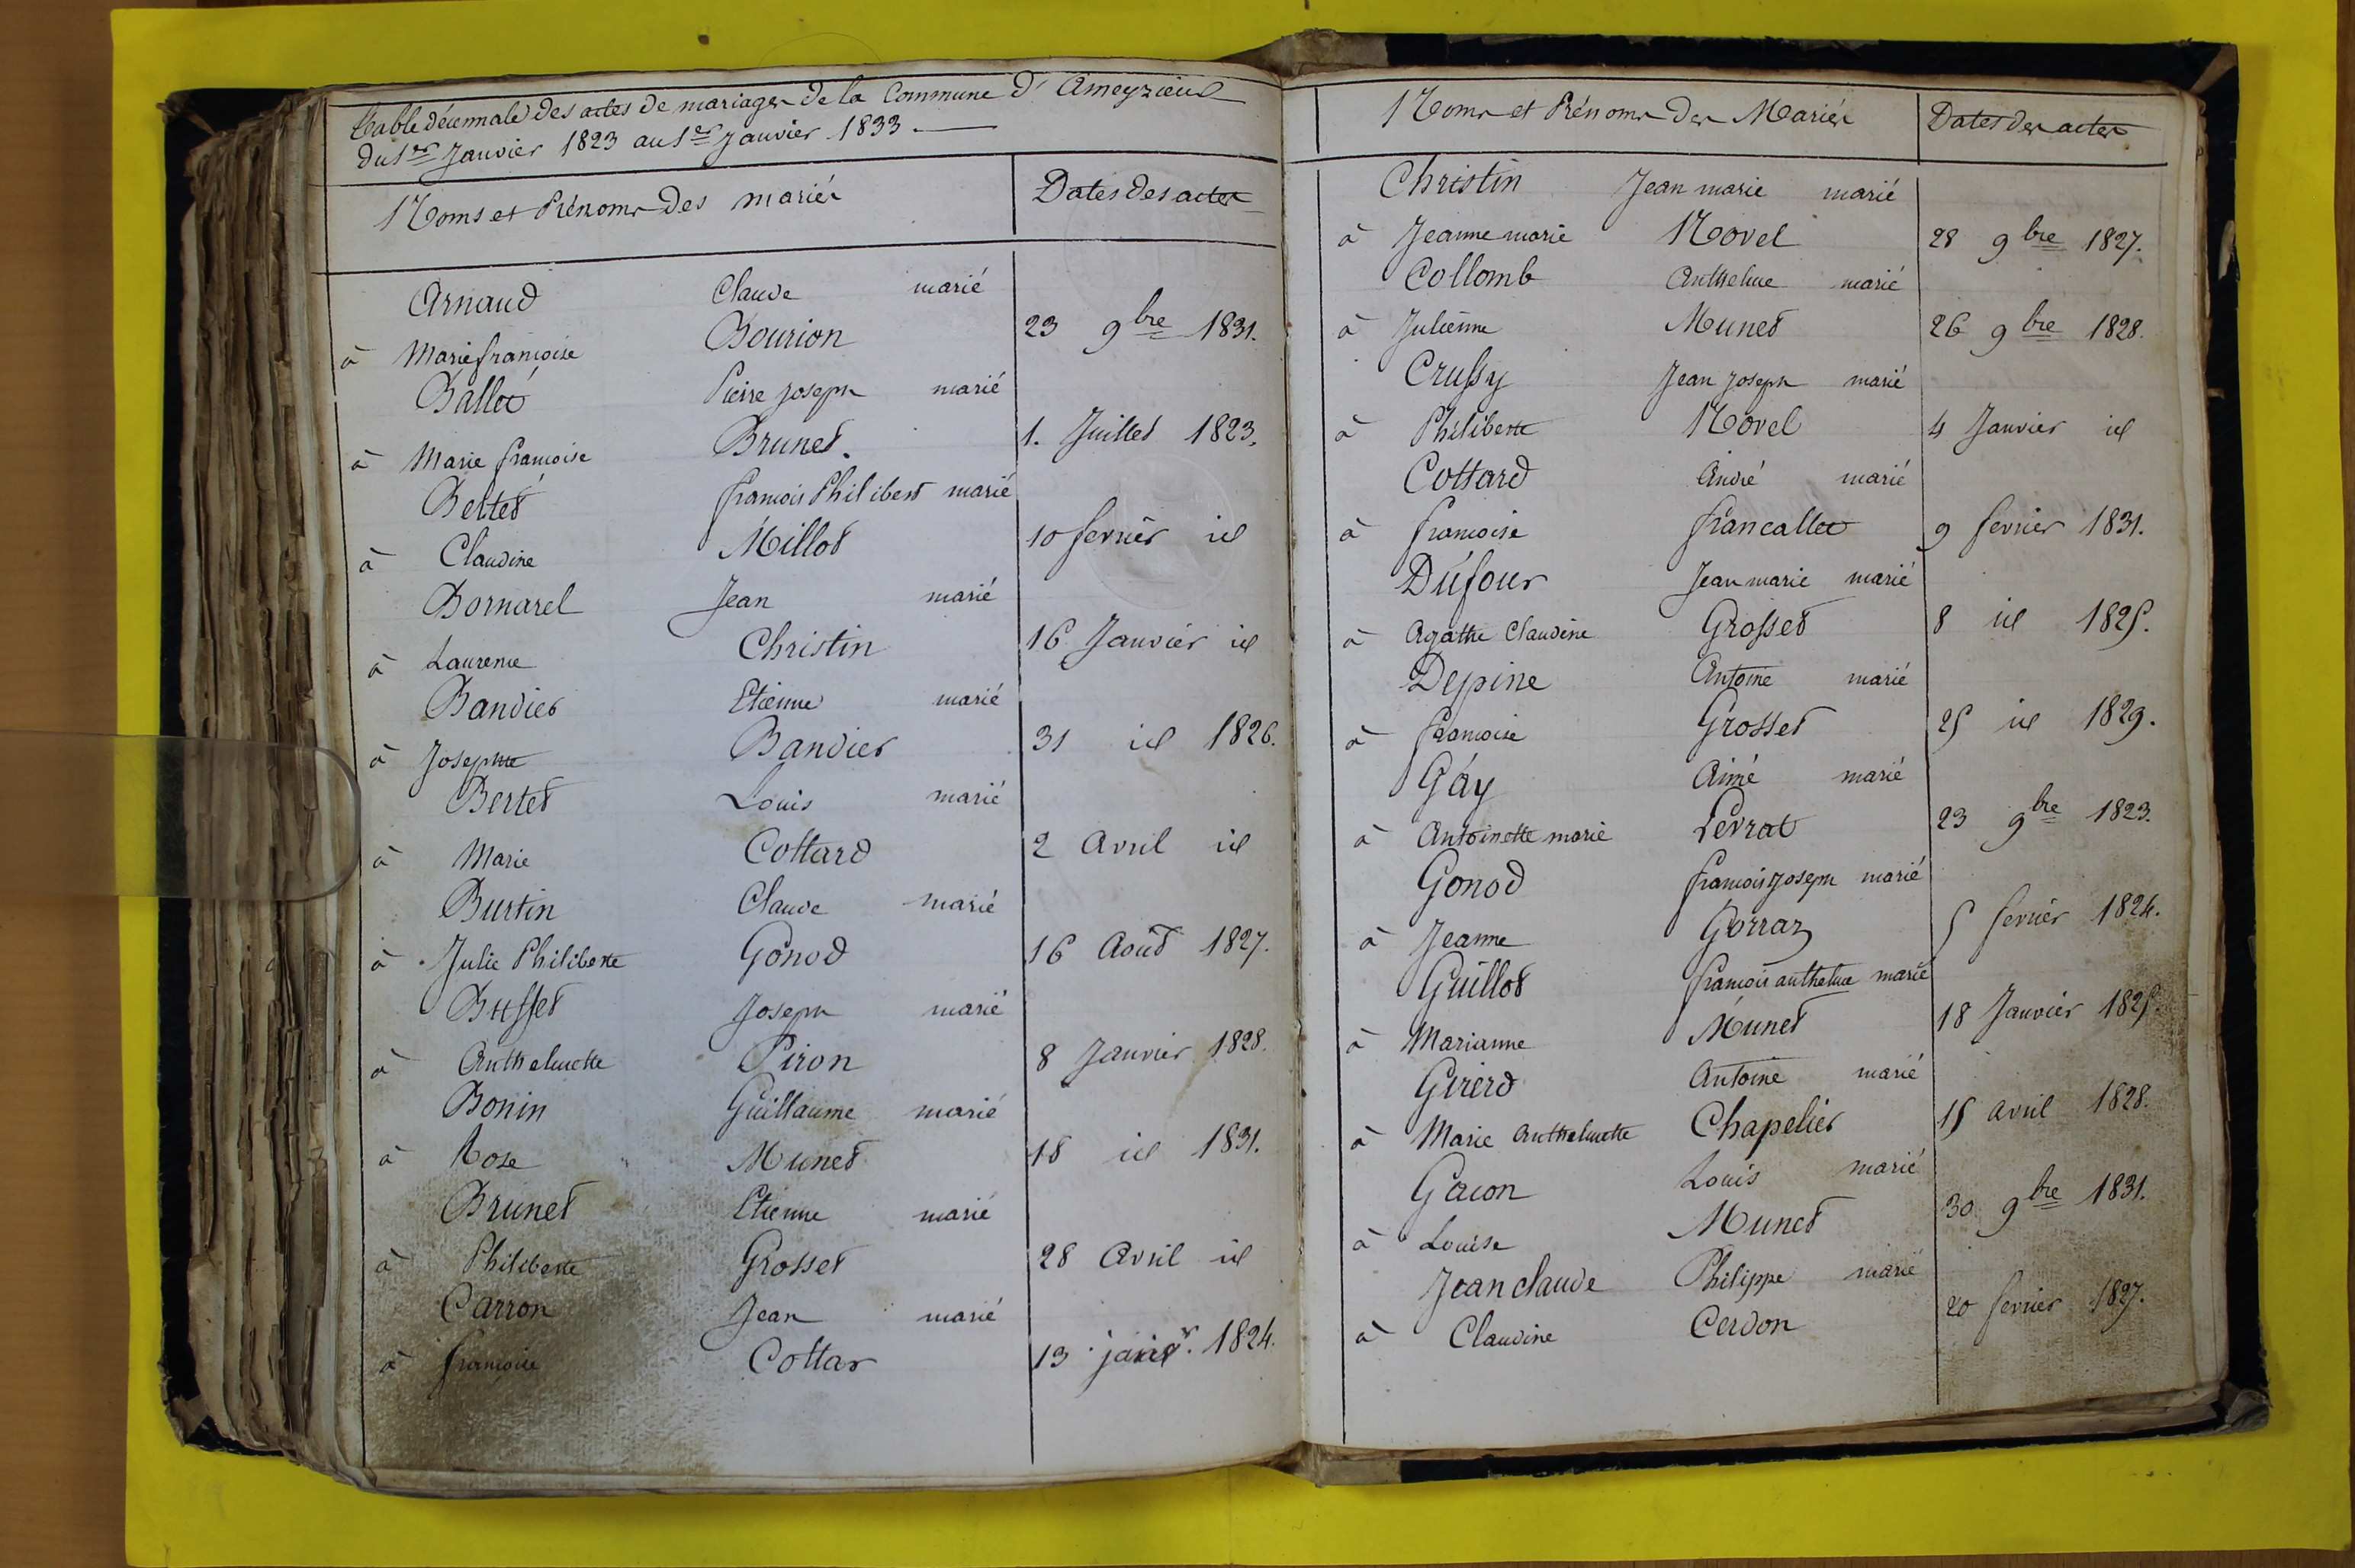 Table décennale des actes de mariages de la Commune d'Ameyzieux
du 1er Janvier 1823 au 1er Janvier 1833.
Noms et Prénoms des mariés Dates des actes
Arnaud Claude marié
à Marie françoise Bourion 23 9bre 1831.
Ballet Pierre Joseph marié
à Marie françoise Brunet. 1. Juillet 1823.
Bettet françois Philibert marié
à Claudine Millot 10 fevrier id
Bornarel Jean marié
à Laurence Christin 16 Janvier id
Bandier Etienne marié
à Josephte Bandier 31 id 1826.
Bertet Louis marié
à Marie Cottard 2 Avril id
Burtin Claude marié
à Julie Philiberte Gonod 16 Août 1827.
Busset Joseph marié
à Anthelmette Piron 8 Janvier 1828.
Bonin Guillaume marié
à Rose Munet 18 id 1831.
Brunet Etienne marié
à Philiberte Grosset 28 Avril id
Carron Jean marié
à françoise Cottar 13 1824.
Noms et Prénoms des Mariés Dates des actes
Christin Jean marie marié
à Jeanne marie Novel 28 9bre 1827.
Collomb Anthelme marié
à Julienne Munet 26 9bre 1828.
Crussy Jean Joseph marié
à Philiberte Novel 4 Janvier id
Cottard André marié
à françoise francallet 9 fevrier 1831.
Dufour Jean marie marié
à Agathe Claudine Grosset 8 id 1825.
Depine Antoine marié
à françoise Grosset 25 id 1829.
Gay Aimé marié
à Antoinette marie Perrat 23 9bre 1823.
Gonod françois Joseph marié
à Jeanne Gorraz 5 fevrier 1824.
Guillot françois anthelme marié
à Marianne Munet 18 Janvier 1825.
Girerd Antoine marié
à Marie Anthelmette Chapelier 15 avril 1828.
Gacon Louis marié
à Louise Munet 30 9bre 1831.
Jean claude Philippe marié
à Claudine Cerdon 20 fevrier 1827.